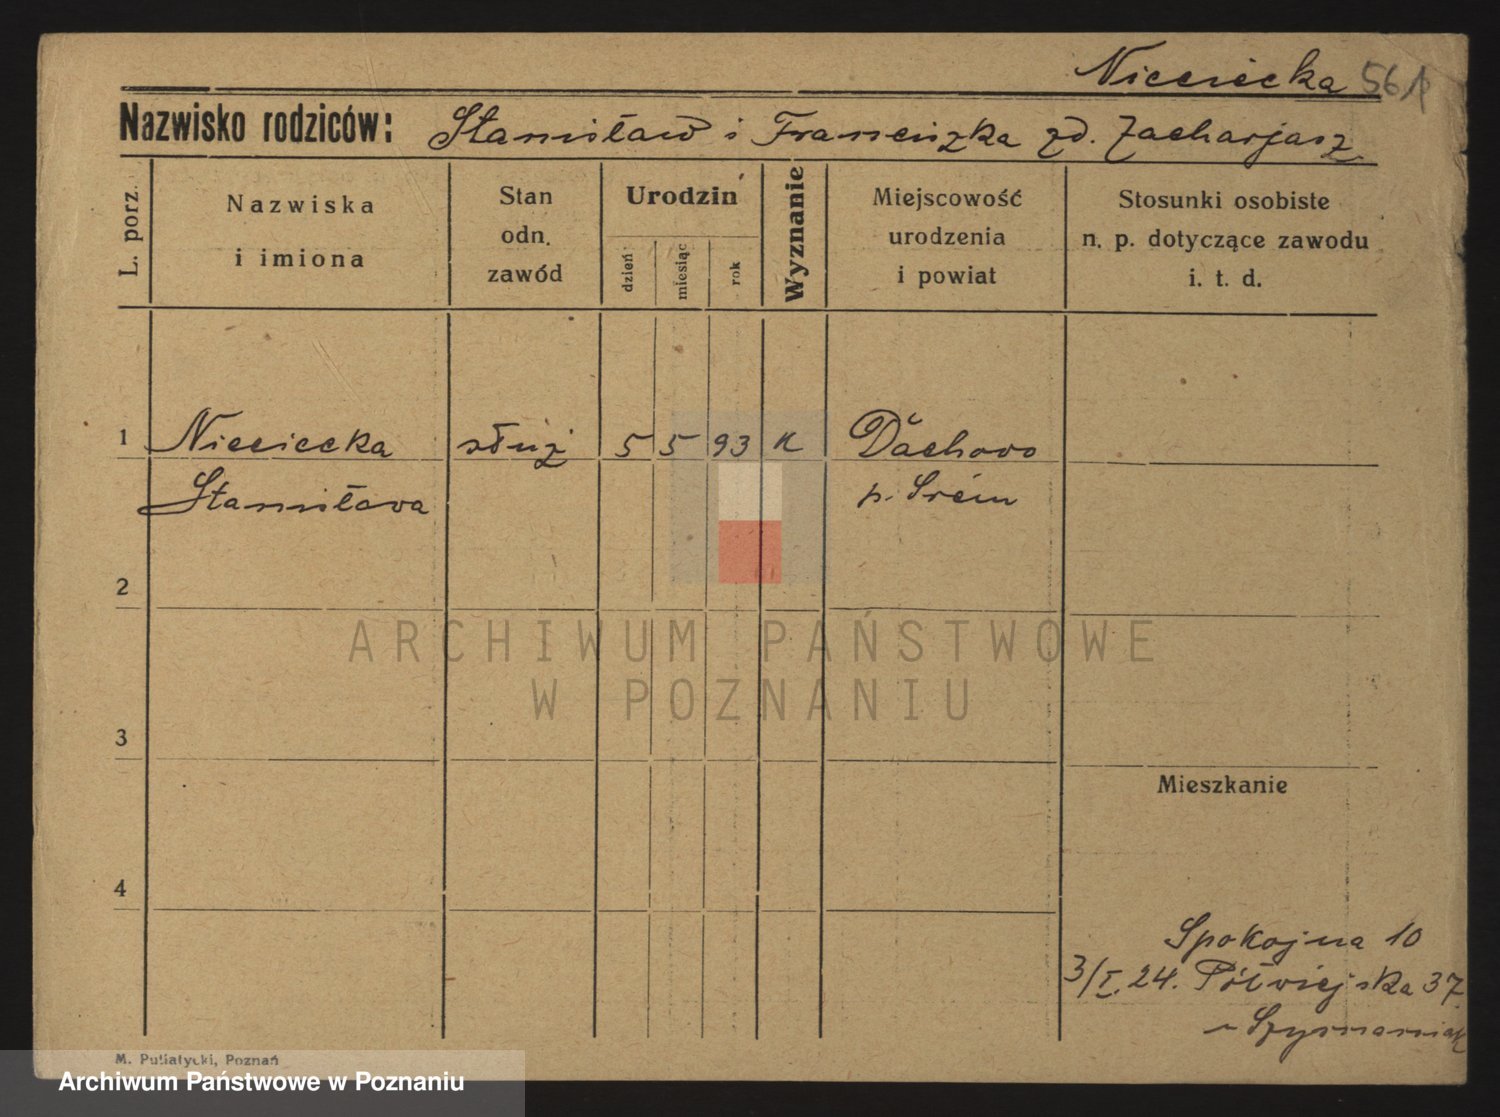 Nieciecka 561
Nazwisko rodziców: Stanisław i Franciszka zd. Zacharjasz
L. porz.
Nazwiska
i imiona
Stan
odn.
zawód
Urodzin
dzień
miesiąc
rok
Wyznanie
Miejscowość
urodzenia
i powiat
Stosunki osobiste
n. p. dotyczące zawodu
i. t. d.
1 Nieciecka służ 5 5 93 K Dachowo
Stanisława p. Śrem
2
3
4
ARCHIWUM PAŃSTWOWE
W POZNANIU
Mieszkanie
Spokojna 10
3/I.24. Półwiejska 37
u Szymaniak
M. Putiatycki, Poznań
Archiwum Państwowe w Poznaniu